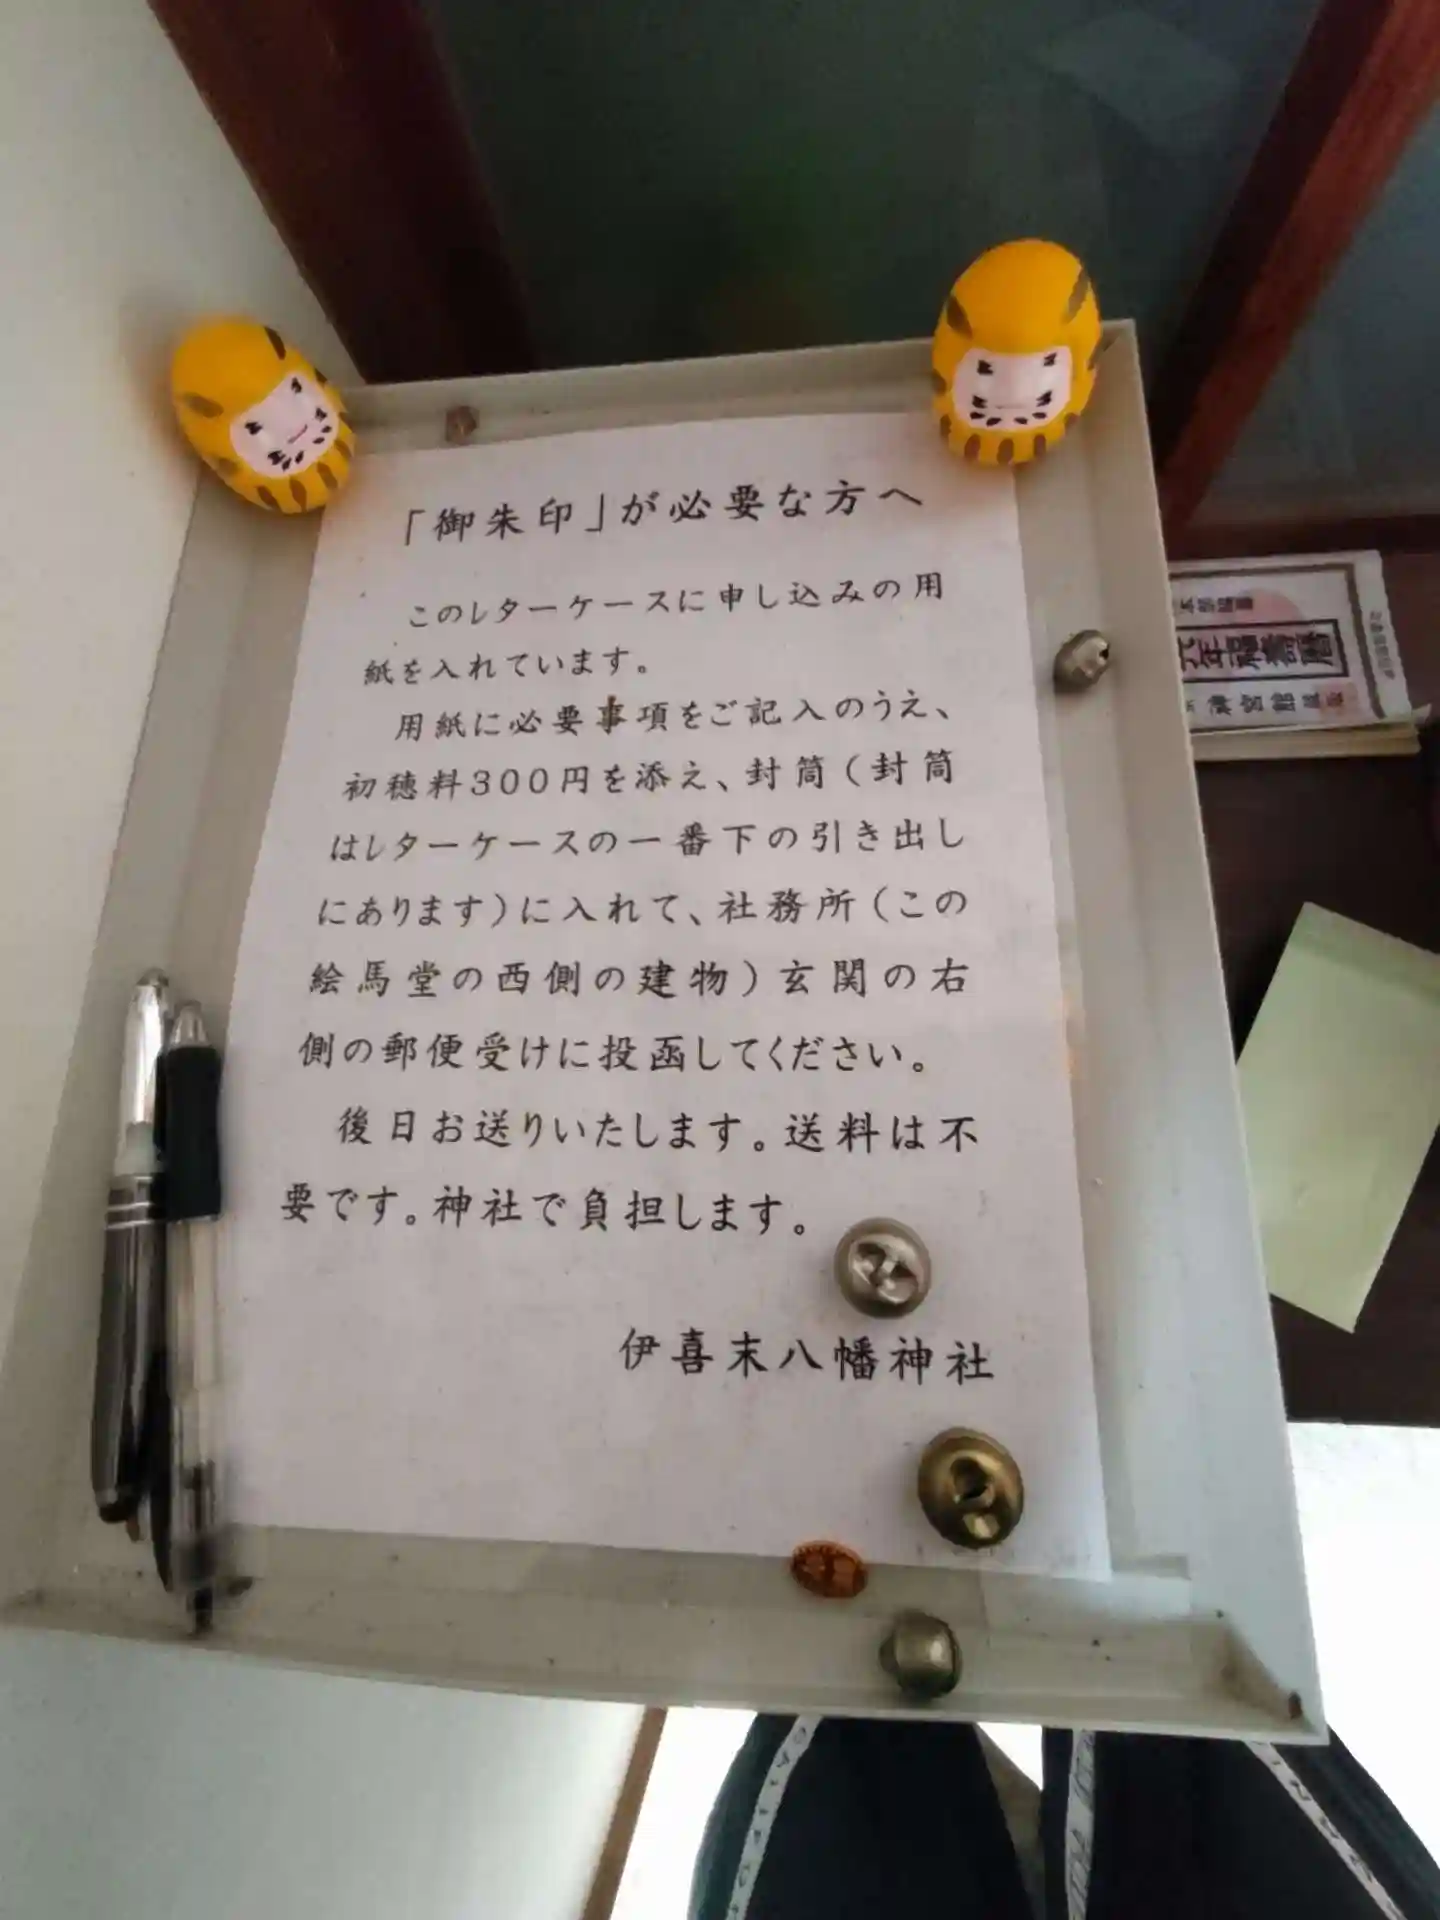 「御朱印」が必要な方へ
このレターケースに申し込みの用
紙を入れています。
用紙に必要事項をご記入のうえ、
初穂料300円を添え、封筒(封筒
はレターケースの一番下の引き出し
にあります)に入れて、社務所(この
絵馬堂の西側の建物)玄関の右
側の郵便受けに投函してください。
後日お送りいたします。送料は不
要です。神社で負担します。
伊喜末八幡神社
六年福寿暦
神宮館